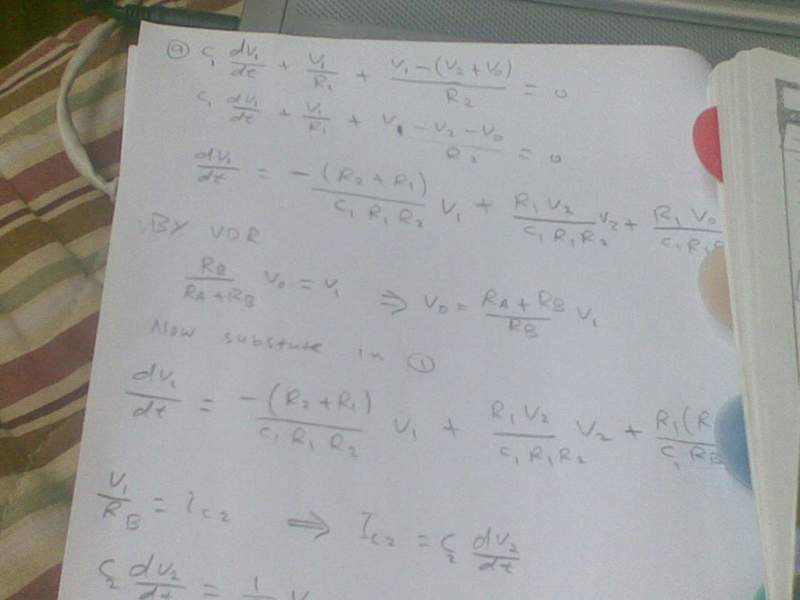 (a) C₁ dV₁/dt + V₁/R₁ + (V₁ - (V₂ + V₀))/R₂ = 0
C₁ dV₁/dt + V₁/R₁ + (V₁ - V₂ - V₀)/R₂ = 0
dV₁/dt = -(R₂ + R₁)/(C₁ R₁ R₂) V₁ + (R₁ V₂)/(C₁ R₁ R₂) V₂ + (R₁ V₀)/(C₁ R₁
BY VDR
R_B/(R_A + R_B) V₀ = V₁ ⇒ V₀ = (R_A + R_B)/R_B V₁
Now substute in ①
dV₁/dt = -(R₂ + R₁)/(C₁ R₁ R₂) V₁ + (R₁ V₂)/(C₁ R₁ R₂) V₂ + (R₁ (R)/(C₁ R_B
V₁/R_B = I_C₂ ⇒ I_C₂ = C₂ dV₂/dt
C₂ dV₂/dt = 1